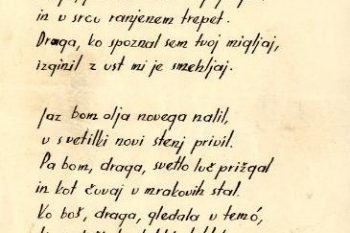 in v srcu ranjenem trepet.
Draga, ko spoznal sem tvoj migljaj,
izginil z ust mi je smehljaj.
Jaz bom olja novega nalil,
v svetilki novi stenj privil.
Pa bom, draga, svetlo luč prižgal
in kot čuvaj v mrakovih stal.
Ko boš, draga, gledala v temó,